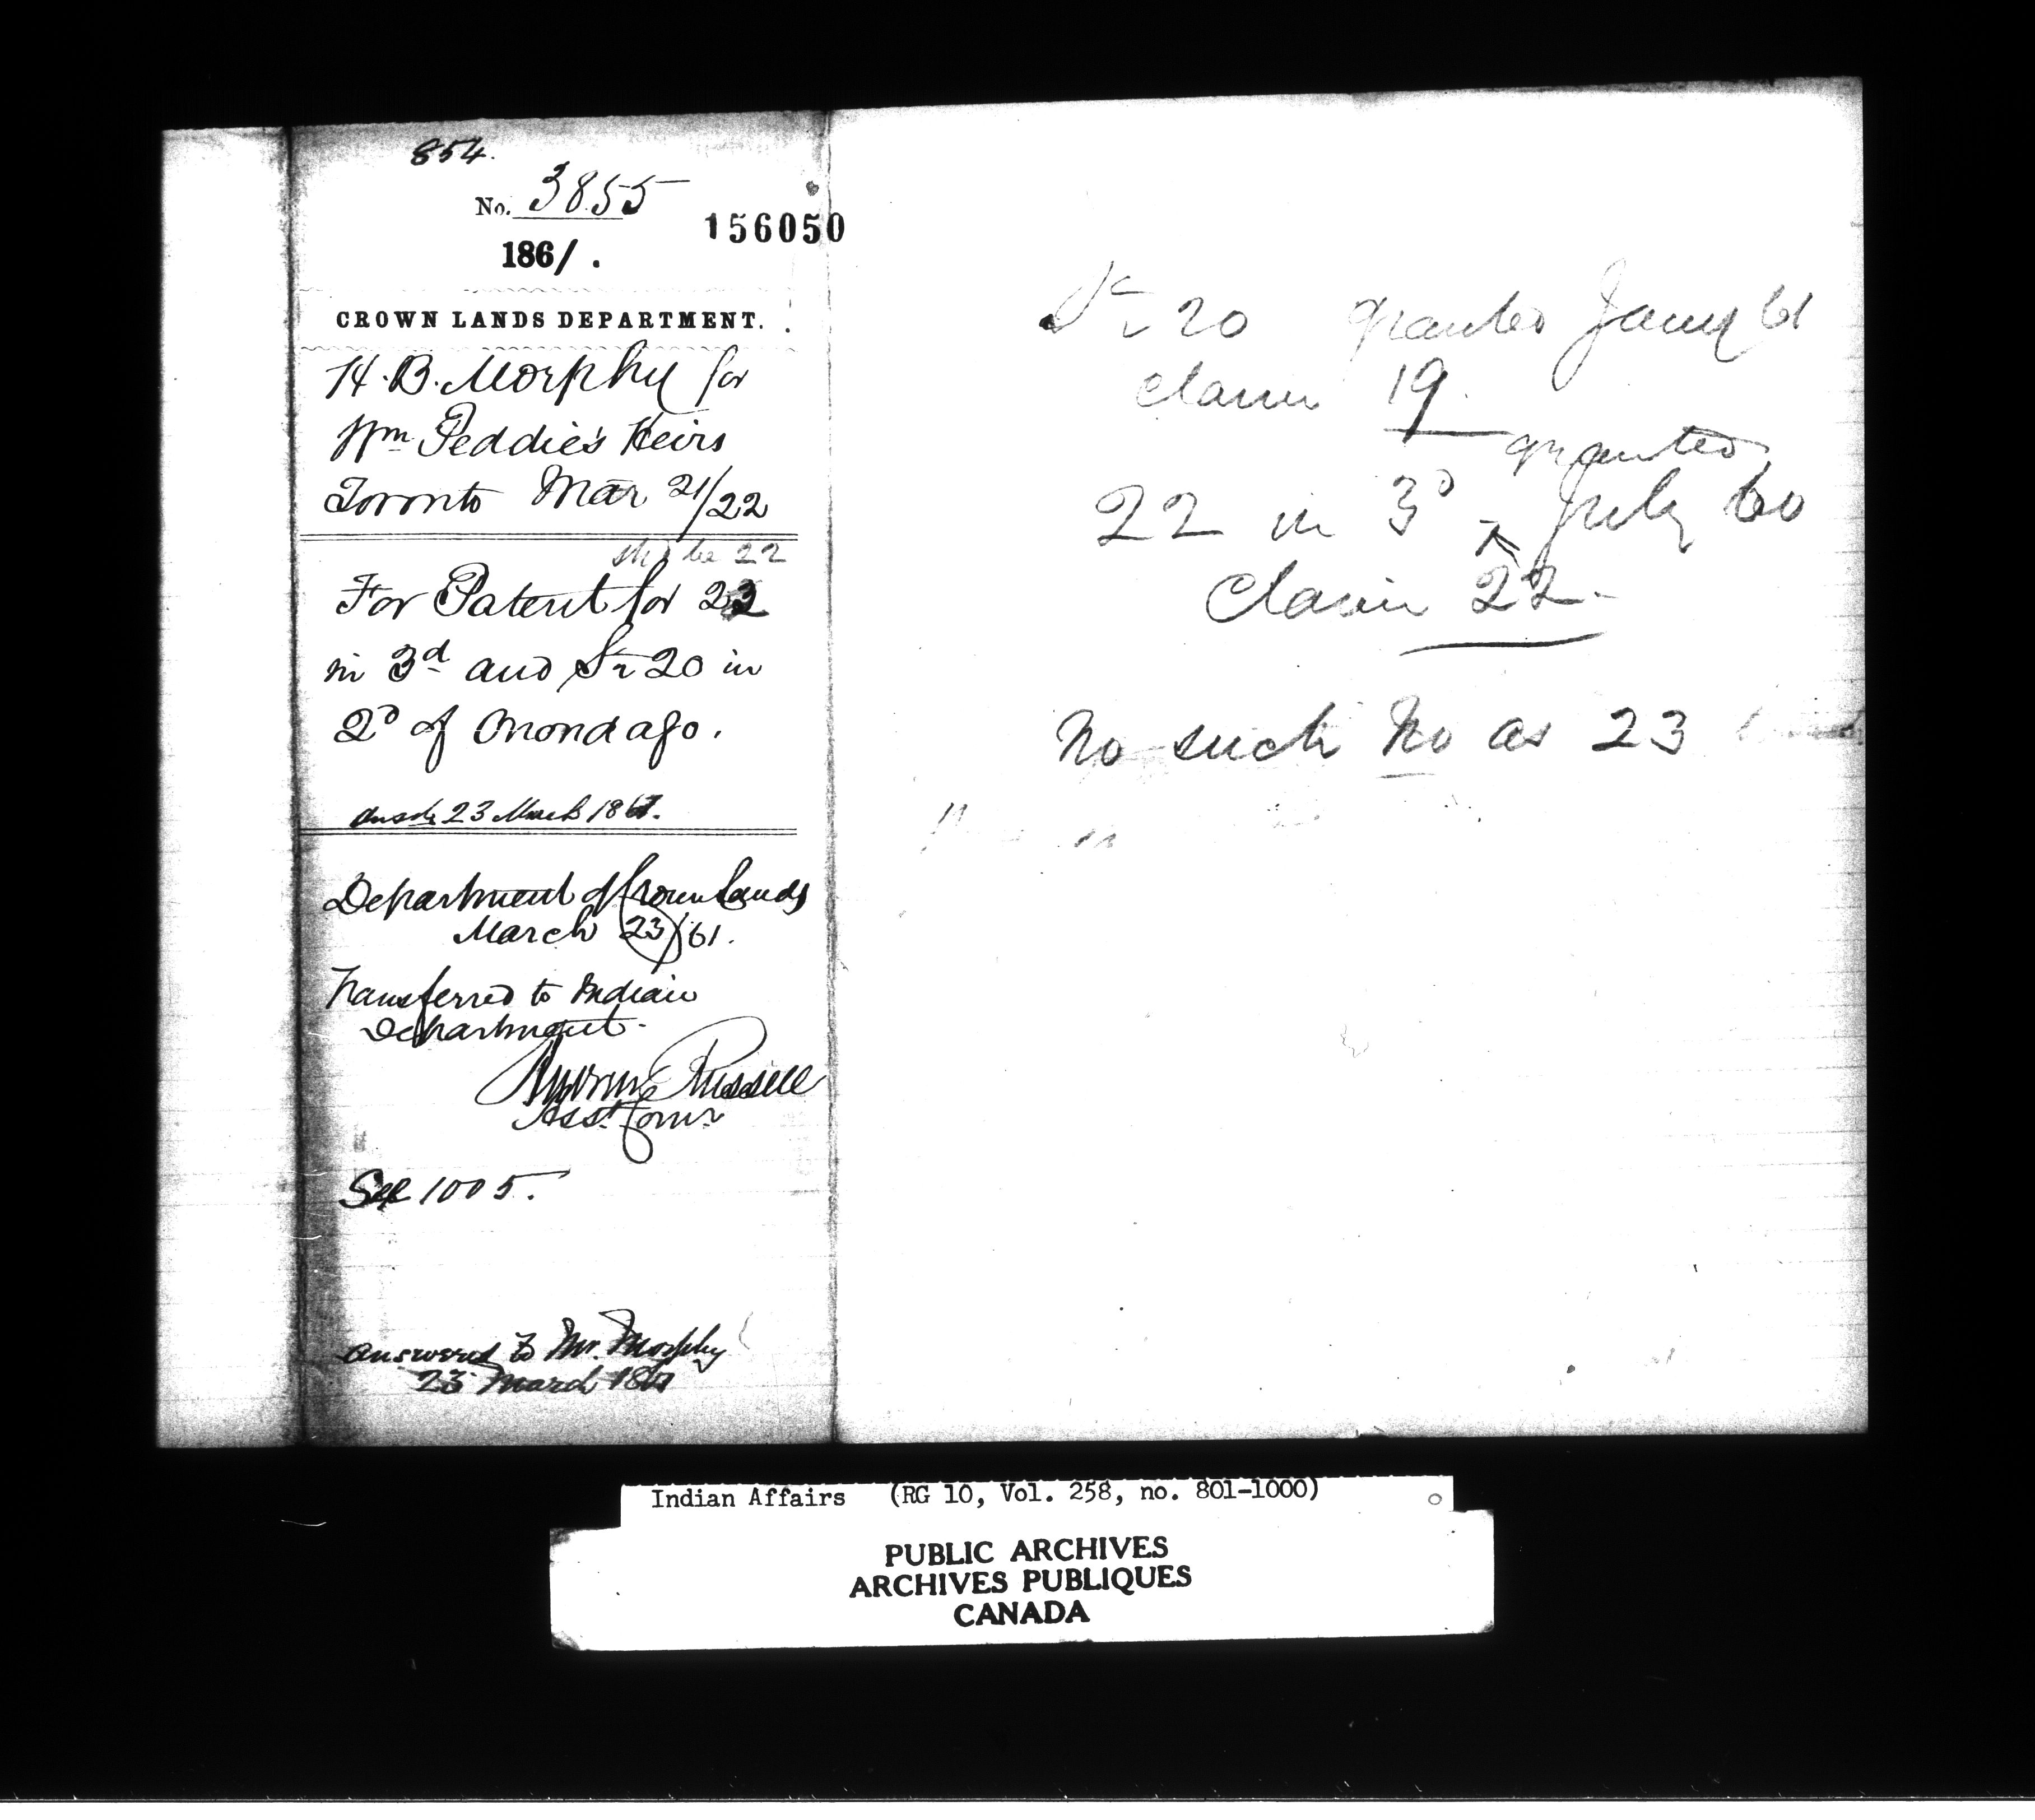 854.
No. 3855
156050
1861.
CROWN LANDS DEPARTMENT.
H. B. Morphy for
Wm Peddie's Heirs
Toronto Mar 21/22
shd be 22
For Patent for 23
in 3d and Sr 20 in
2d of Onondago.
Ansd 23 March 1861.
Department of Crown Lands
March 23/61.
Transferred to Indian
Department.
Andrew Russell
Asst. Comr
See 1005.
Answered to Mr. Morphy
23 March 1861
Sr 20 granted Jany 61
Claim 19.
granted
22 in 3d July 60
Claim 22.
No such No as 23
Indian Affairs (RG 10, Vol. 258, no. 801-1000)
PUBLIC ARCHIVES
ARCHIVES PUBLIQUES
CANADA